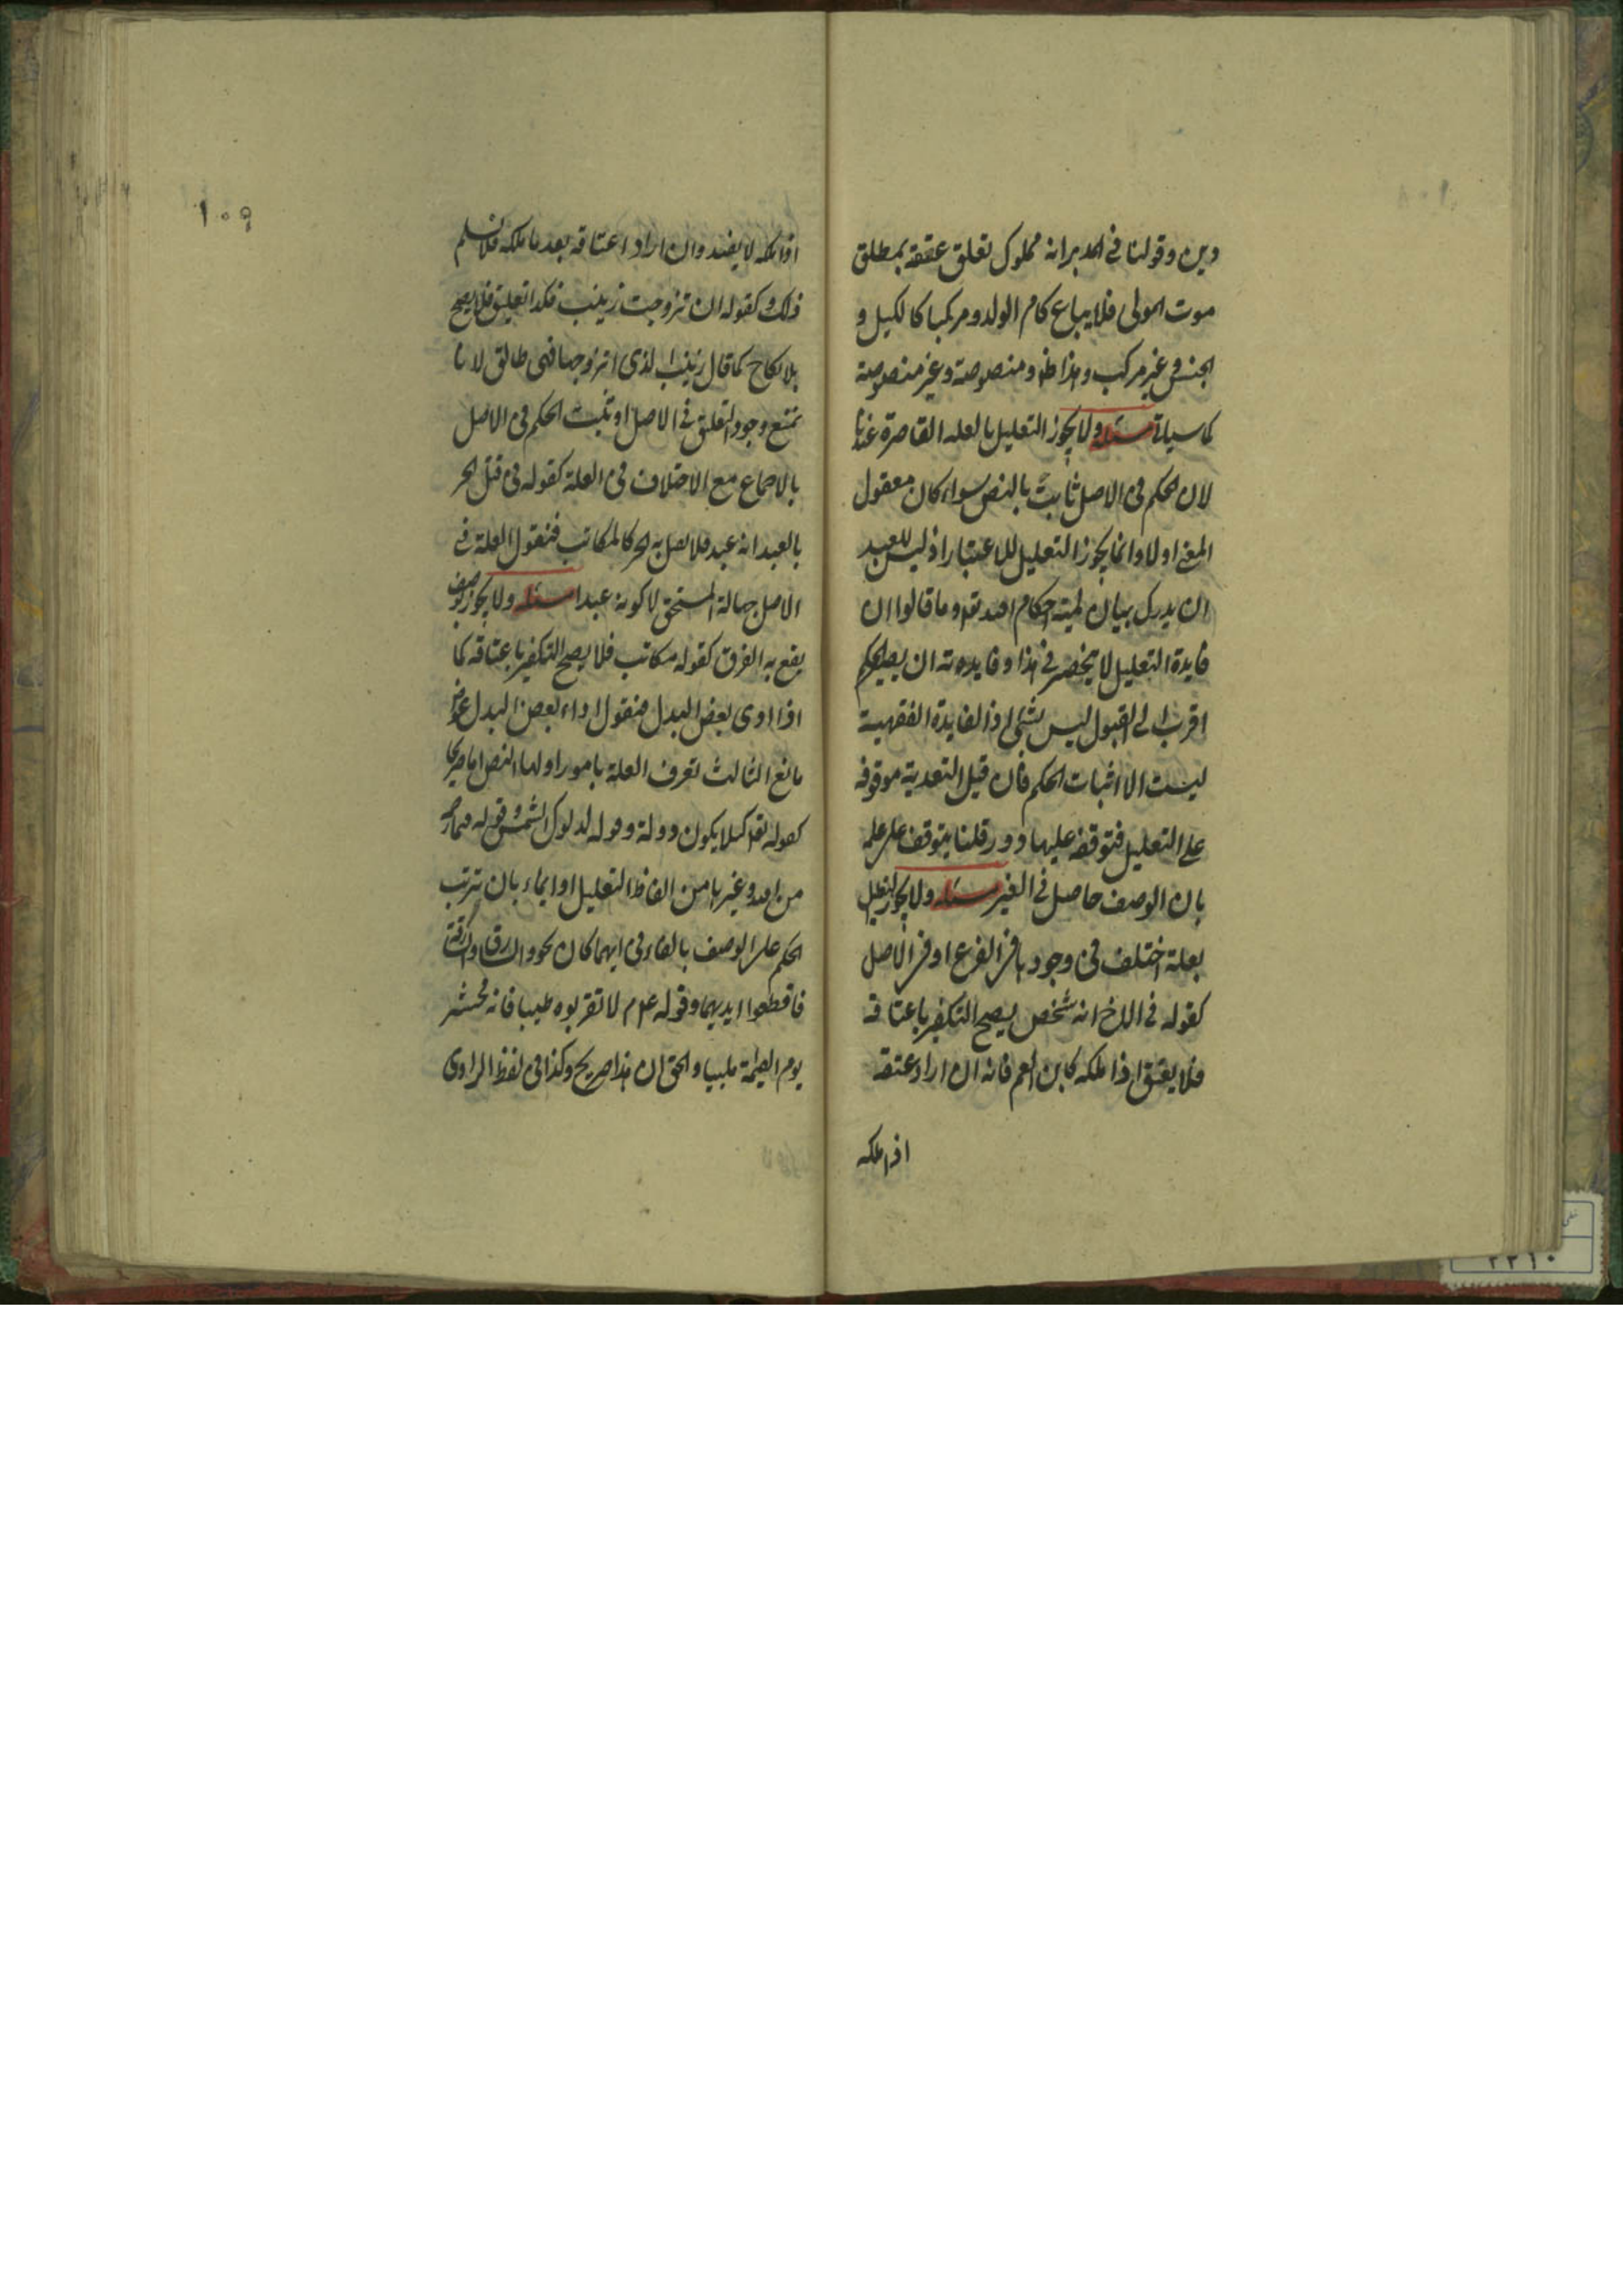 دين وقولنا في المدبر انه مملوك تعلق عتقه بمطلق
موت المولى فلا يباع كام الولد ومركبا كالكيل و
الجنس وغير مركب وهذا ظ ومنصوصة وغير منصوصة
كما سياتي مسئله ولا يجوز التعليل بالعله القاصرة عندنا
لان الحكم في الاصل ثابت بالنص سواء كان معقول
المعنى اولا وانما يجوز التعليل للاعتبار اذ ليس للعبد
ان يدرك بيان لمية احكام الله تعه وما قالوا ان
فايدة التعليل لا ينحصر في هذا وفايدته ان يصير الحكم
اقرب الى القبول ليس بشئ اذ الفايدة الفقهية
ليست الا اثبات الحكم فان قيل التعدية موقوفه
على التعليل فتوقفه عليها دور قلنا يتوقف على علمه
بان الوصف حاصل في الغير مسئله ولا يجوز التعليل
بعلة اختلف في وجودها في الفرع او في الاصل
كقوله في الاخ انه شخص يصح التكفير باعتاقه
فلا يعتق اذا ملكه كابن العم فانه ان اراد عتقه
اذا ملكه
١٠٩
اذا ملكه لا يفيد وان اراد اعتاقه بعد ما ملكه فلا نسلم
ذلك وكقوله ان تزوجت زينب فكذا تعليق فلا يصح
بلا نكاح كما قال زينب الذى اتزوجها فهى طالق لانا
نمنع وجود التعليق في الاصل او ثبت الحكم في الاصل
بالاجماع مع الاختلاف في العلة كقوله في قتل الحر
بالعبد انه عبد فلا يقتل به الحر كالمكاتب فنقول العلة في
الاصل جهالة المستحق لا كونه عبدا مسئله ولا يجوز بوصف
يقع به الفرق كقوله مكاتب فلا يصح التكفير باعتاقه كما
اذا ادى بعض البدل فنقول اداء بعض البدل عوض
مانع الثالث تعرف العلة بامور اولها النص اما صريحا
كقوله تعه كيلا يكون دولة وقوله لدلوك الشمس وقوله فبما رحمة
من الله وغيرها من الفاظ التعليل او ايماء بان يترتب
الحكم على الوصف بالفاء في ايهما كان نحو والسارق والسارقة
فاقطعوا ايديهما وقوله عم لا تقربوه طيبا فانه يحشر
يوم القيمة ملبيا والحق ان هذا صريح وكذا في لفظ الراوى